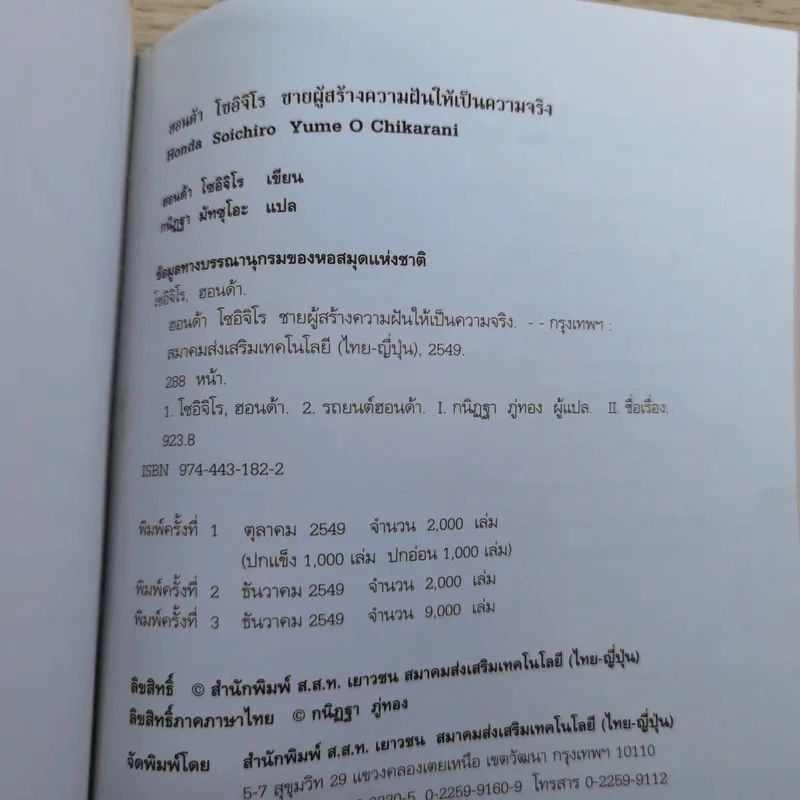 ฮอนด้า โซอิจิโร ชายผู้สร้างความฝันให้เป็นความจริง
Honda Soichiro Yume O Chikarani
ฮอนด้า โซอิจิโร เขียน
กนิฏฐา มัทซุโอะ แปล
ข้อมูลทางบรรณานุกรมของหอสมุดแห่งชาติ
โซอิจิโร, ฮอนด้า.
ฮอนด้า โซอิจิโร ชายผู้สร้างความฝันให้เป็นความจริง. - - กรุงเทพฯ :
สมาคมส่งเสริมเทคโนโลยี (ไทย-ญี่ปุ่น), 2549.
288 หน้า.
1. โซอิจิโร, ฮอนด้า. 2. รถยนต์ฮอนด้า. I. กนิฏฐา ภู่ทอง ผู้แปล. II. ชื่อเรื่อง.
923.8
ISBN 974-443-182-2
พิมพ์ครั้งที่ 1 ตุลาคม 2549 จำนวน 2,000 เล่ม
(ปกแข็ง 1,000 เล่ม ปกอ่อน 1,000 เล่ม)
พิมพ์ครั้งที่ 2 ธันวาคม 2549 จำนวน 2,000 เล่ม
พิมพ์ครั้งที่ 3 ธันวาคม 2549 จำนวน 9,000 เล่ม
ลิขสิทธิ์ © สำนักพิมพ์ ส.ส.ท. เยาวชน สมาคมส่งเสริมเทคโนโลยี (ไทย-ญี่ปุ่น)
ลิขสิทธิ์ภาคภาษาไทย © กนิฏฐา ภู่ทอง
จัดพิมพ์โดย สำนักพิมพ์ ส.ส.ท. เยาวชน สมาคมส่งเสริมเทคโนโลยี (ไทย-ญี่ปุ่น)
5-7 สุขุมวิท 29 แขวงคลองเตยเหนือ เขตวัฒนา กรุงเทพฯ 10110
0-2259-9160-9 โทรสาร 0-2259-9112